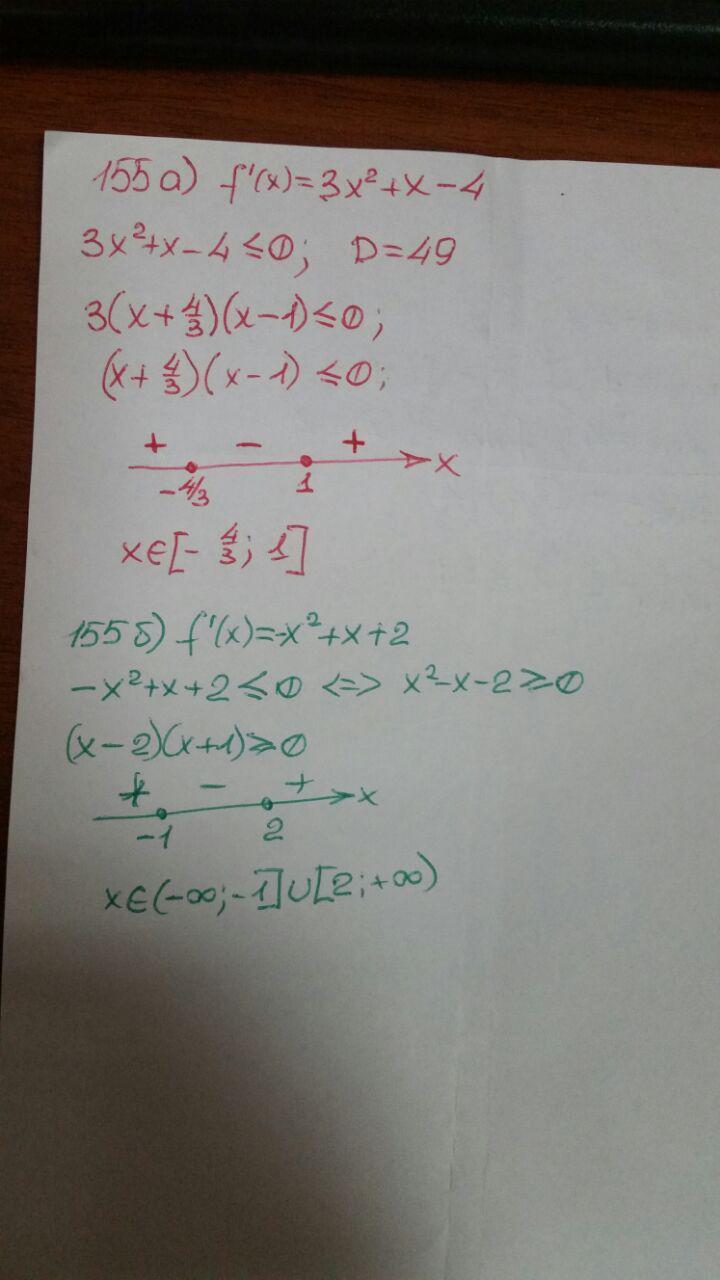 155 а) f'(x)=3x²+x-4
3x²+x-4≤0; D=49
3(x+4/3)(x-1)≤0;
(x+4/3)(x-1)≤0;
+ - +
-4/3 1 x
x∈[-4/3; 1]
155 б) f'(x)=-x²+x+2
-x²+x+2≤0 <=> x²-x-2≥0
(x-2)(x+1)≥0
+ - +
-1 2 x
x∈(-∞;-1]∪[2;+∞)